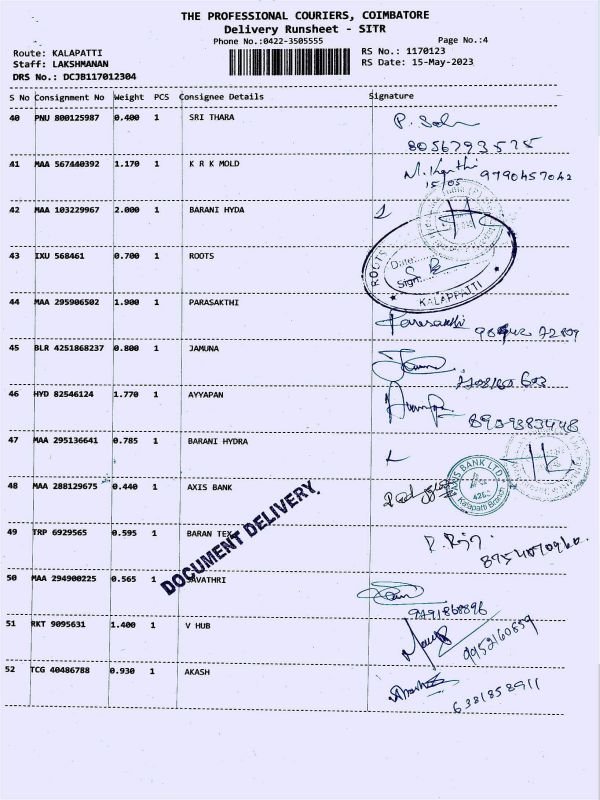 THE PROFESSIONAL COURIERS, COIMBATORE
Delivery Runsheet - SITR
Phone No.:0422-3505555
Page No.:4
Route: KALAPATTI
RS No.: 1170123
Staff: LAKSHMANAN
RS Date: 15-May-2023
DRS No.: DCJB117012304
S No Consignment No Weight PCS Consignee Details Signature
40 PNU 800125987 0.400 1 SRI THARA
8056793575
41 MAA 567440392 1.170 1 K R K MOLD
15/05 9790457042
42 MAA 103229967 2.000 1 BARANI HYDA
43 IXU 568461 0.700 1 ROOTS
ROOTS
Date:
Sign:
KALAPPATTI
44 MAA 295906502 1.900 1 PARASAKTHI
Parasakthi
45 BLR 4251868237 0.800 1 JAMUNA
46 HYD 82546124 1.770 1 AYYAPAN
8939383448
47 MAA 295136641 0.785 1 BARANI HYDRA
48 MAA 288129675 0.440 1 AXIS BANK
AXIS BANK LTD
Kalapatti Branch
49 TRP 6929565 0.595 1 BARAN TEX
DOCUMENT DELIVERY.
50 MAA 294900225 0.565 1 SAVATHRI
9791868896
51 RKT 9095631 1.400 1 V HUB
9952160859
52 TCG 40486788 0.930 1 AKASH
6381858911